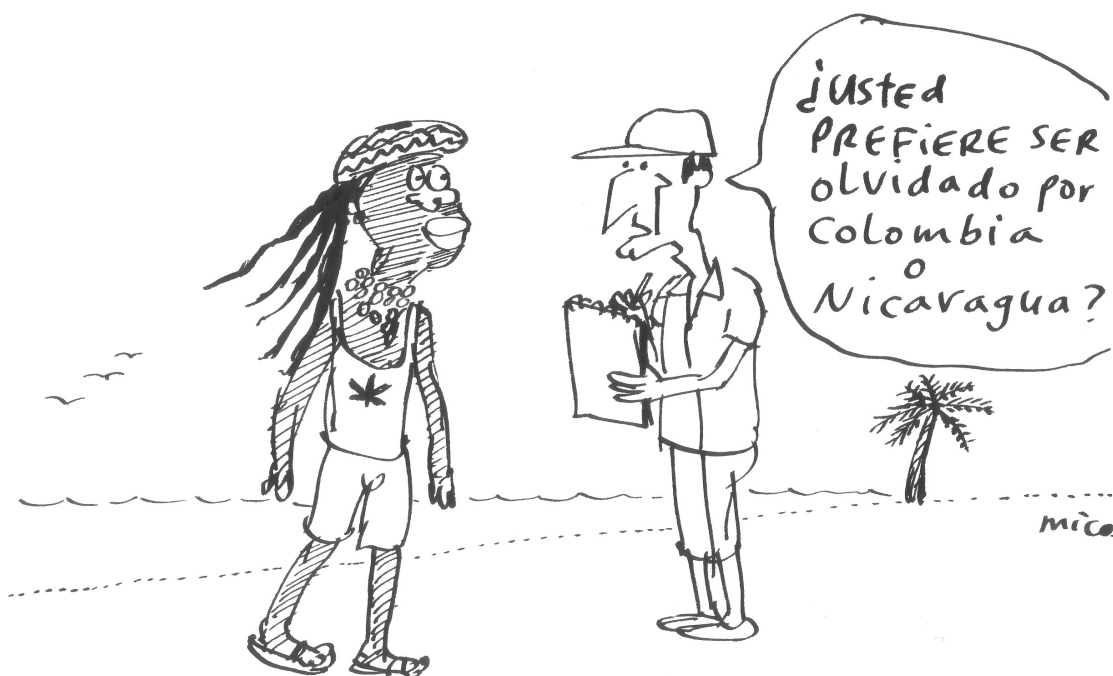 ¿Usted
PREFIERE SER
olvidado por
Colombia
o
Nicaragua?
mico